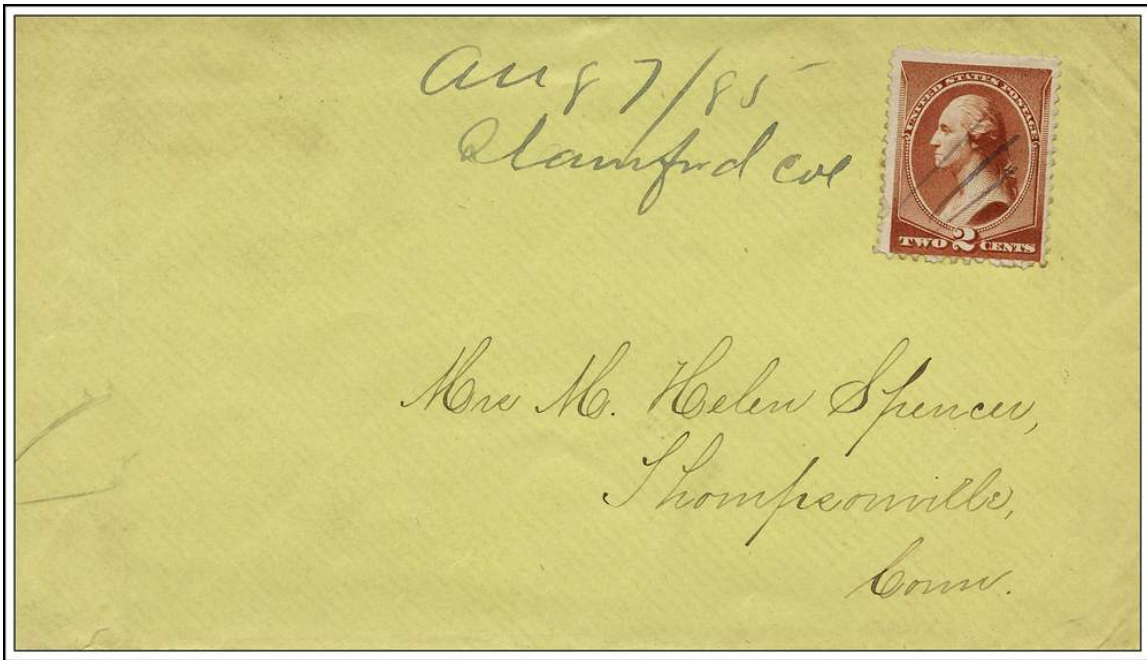 Aug 7/85
Stamford Col
UNITED STATES POSTAGE
TWO 2 CENTS
Mrs M. Helen Spencer,
Thompsonville,
Conn.